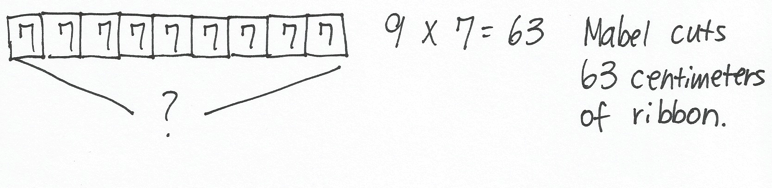 7 7 7 7 7 7 7 7 7
?
9 x 7 = 63
Mabel cuts
63 centimeters
of ribbon.